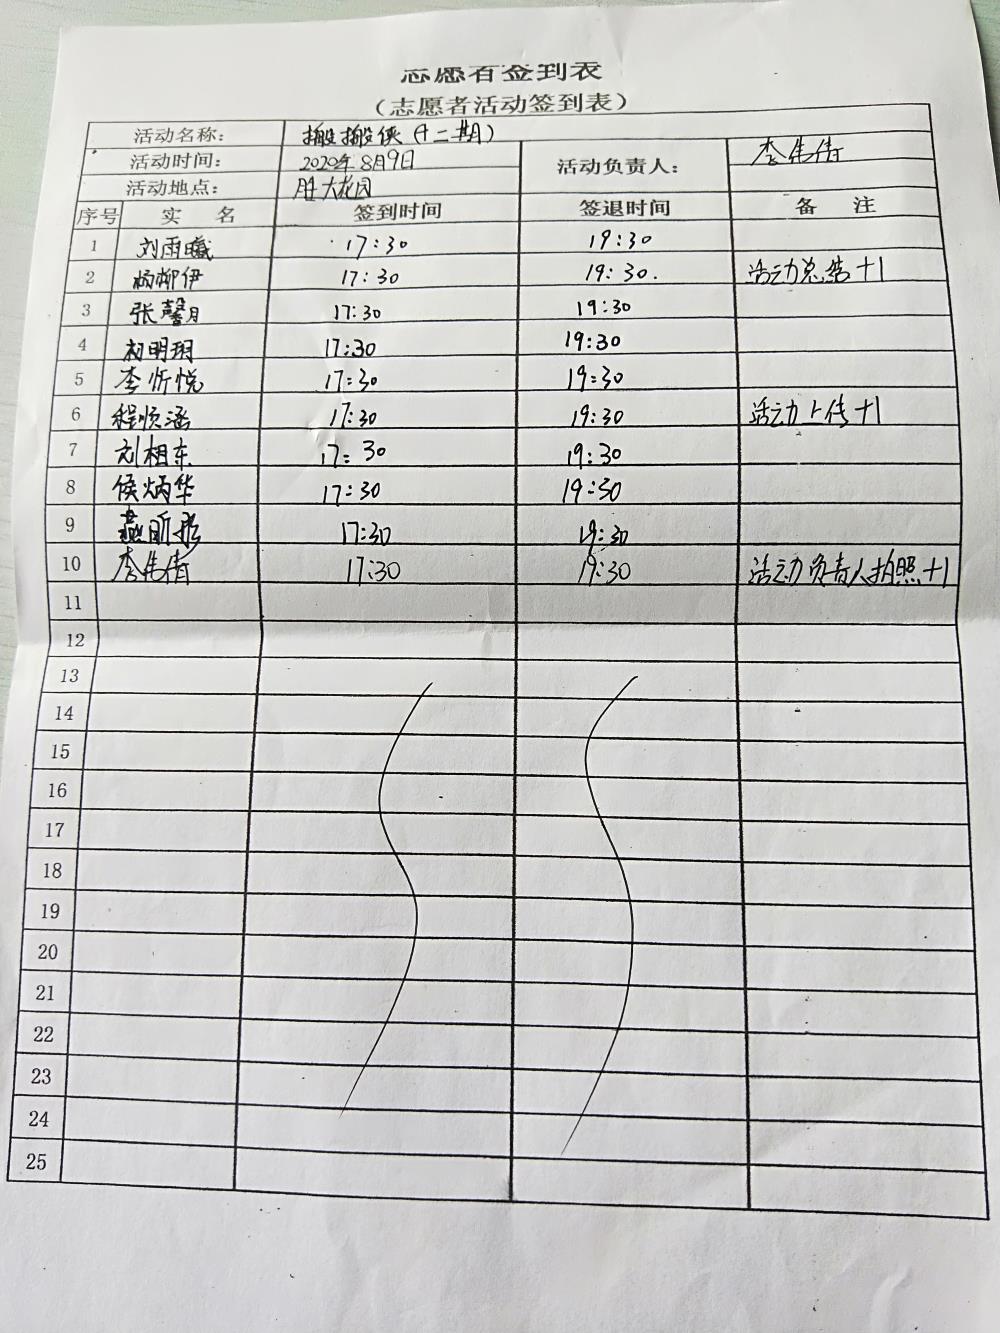 志愿者签到表
（志愿者活动签到表）
活动名称： 搬搬侠（十二期）
活动时间： 2020年8月9日 活动负责人： 李伟倩
活动地点： 胜大花园
序号 实 名 签到时间 签退时间 备 注
1 刘雨曦 17:30 19:30
2 杨柳伊 17:30 19:30. 活动总结+1
3 张馨月 17:30 19:30
4 明玥 17:30 19:30
5 李忻悦 17:30 19:30
6 程顺涵 17:30 19:30 活动上传+1
7 刘相东 17:30 19:30
8 侯炳华 17:30 19:30
9 燕昕彤 17:30 19:30
10 李伟倩 17:30 19:30 活动负责人拍照+1
11
12
13
14
15
16
17
18
19
20
21
22
23
24
25